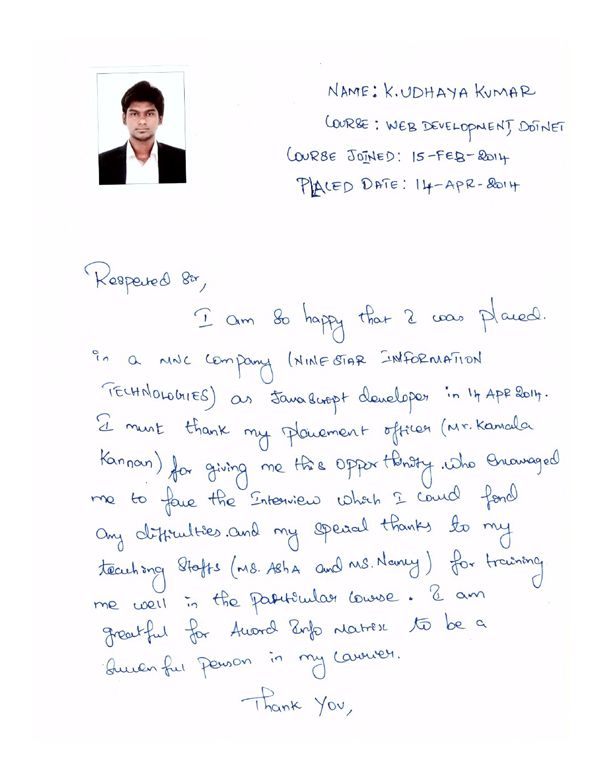 NAME: K.UDHAYA KUMAR
COURSE: WEB DEVELOPMENT, DOTNET
COURSE JOINED: 15-FEB-2014
PLACED DATE: 14-APR-2014
Respected Sir,
I am so happy that I was placed.
in a MNC Company (NINESTAR INFORMATION
TECHNOLOGIES) as JavaScript developer in 14 APR 2014.
I must thank my placement officer (Mr. Kamala
Kannan) for giving me this opportunity. who encouraged
me to face the Interview which I coud fond
any difficulties. and my special thanks to my
teaching Staffs (MS. ASHA and MS. Nancy) for training
me well in the particular course. I am
greatful for Accord Info Matrix to be a
Successful person in my carrier.
Thank You,